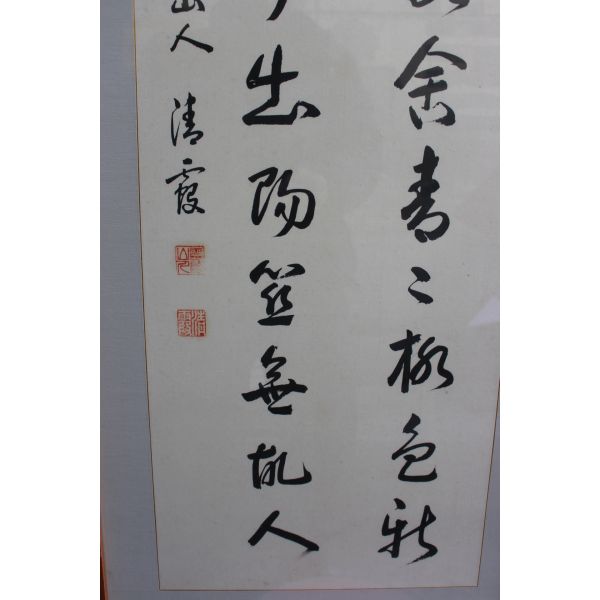 舍青〻柳色新
出陽関無故人
山人 清霞
清霞